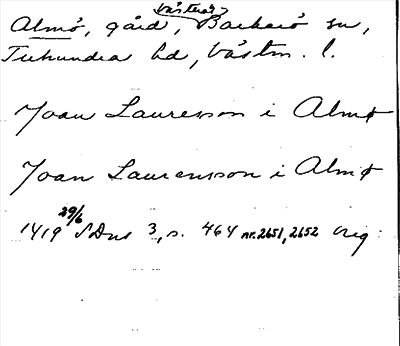 Almö, gård, Västerås, Barkarö sn,
Tuhundra hd, Västm. l.
Joan Lauresson i Almø
Joan Laurensson i Almø
1419 29/6 SDns 3, s. 464 nr. 2651, 2652 orig.